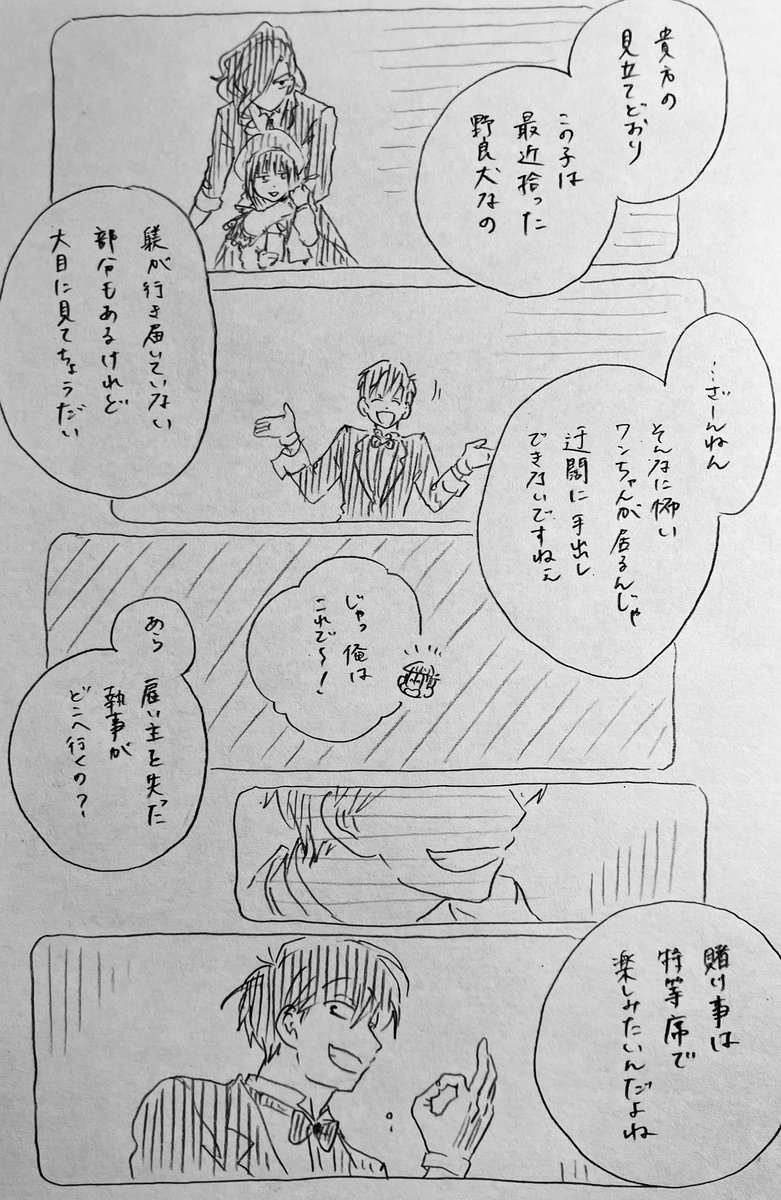 貴方の
見立てどおり
この子は
最近拾った
野良犬なの
躾が行き届いていない
部分もあるけれど
大目に見てちょうだい
…ざーんねん
そんなに怖い
ワンちゃんが居るんじゃ
迂闊に手出し
できないですねぇ
じゃっ俺は
これで〜!
あら
雇い主を失った
執事が
どこへ行くの?
賭け事は
特等席で
楽しみたいんだよね